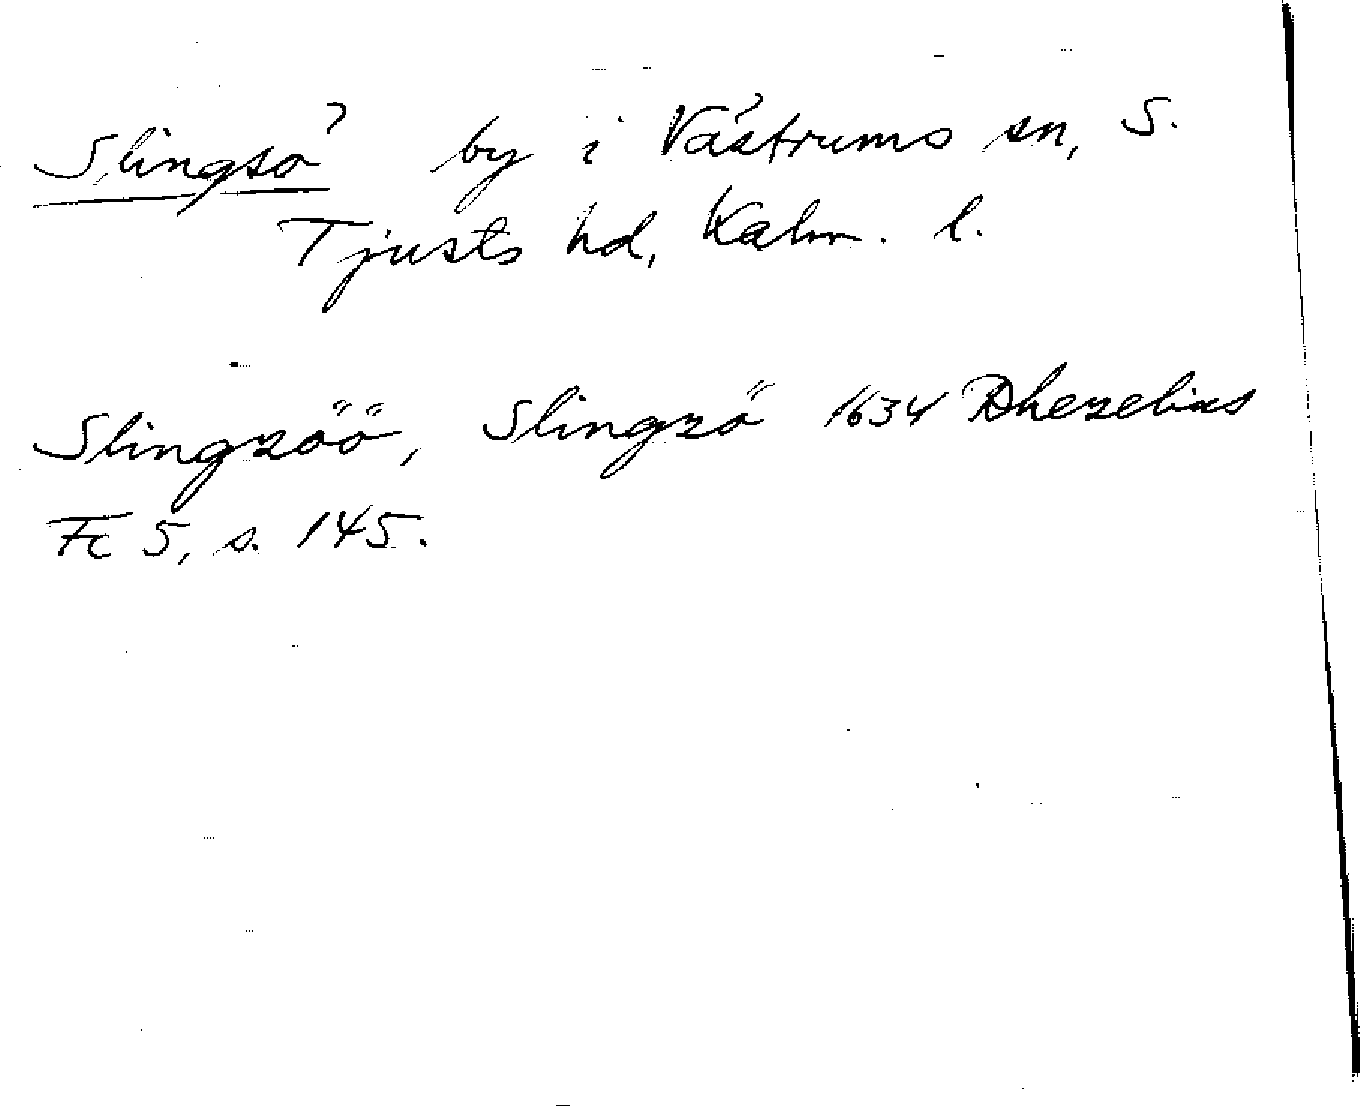 Slingsö by i Västrums sn, S.
Tjusts hd, Kalm. l.
Slingzöö, Slingzö 1634 Rhezelius
Fc 5, s. 145.